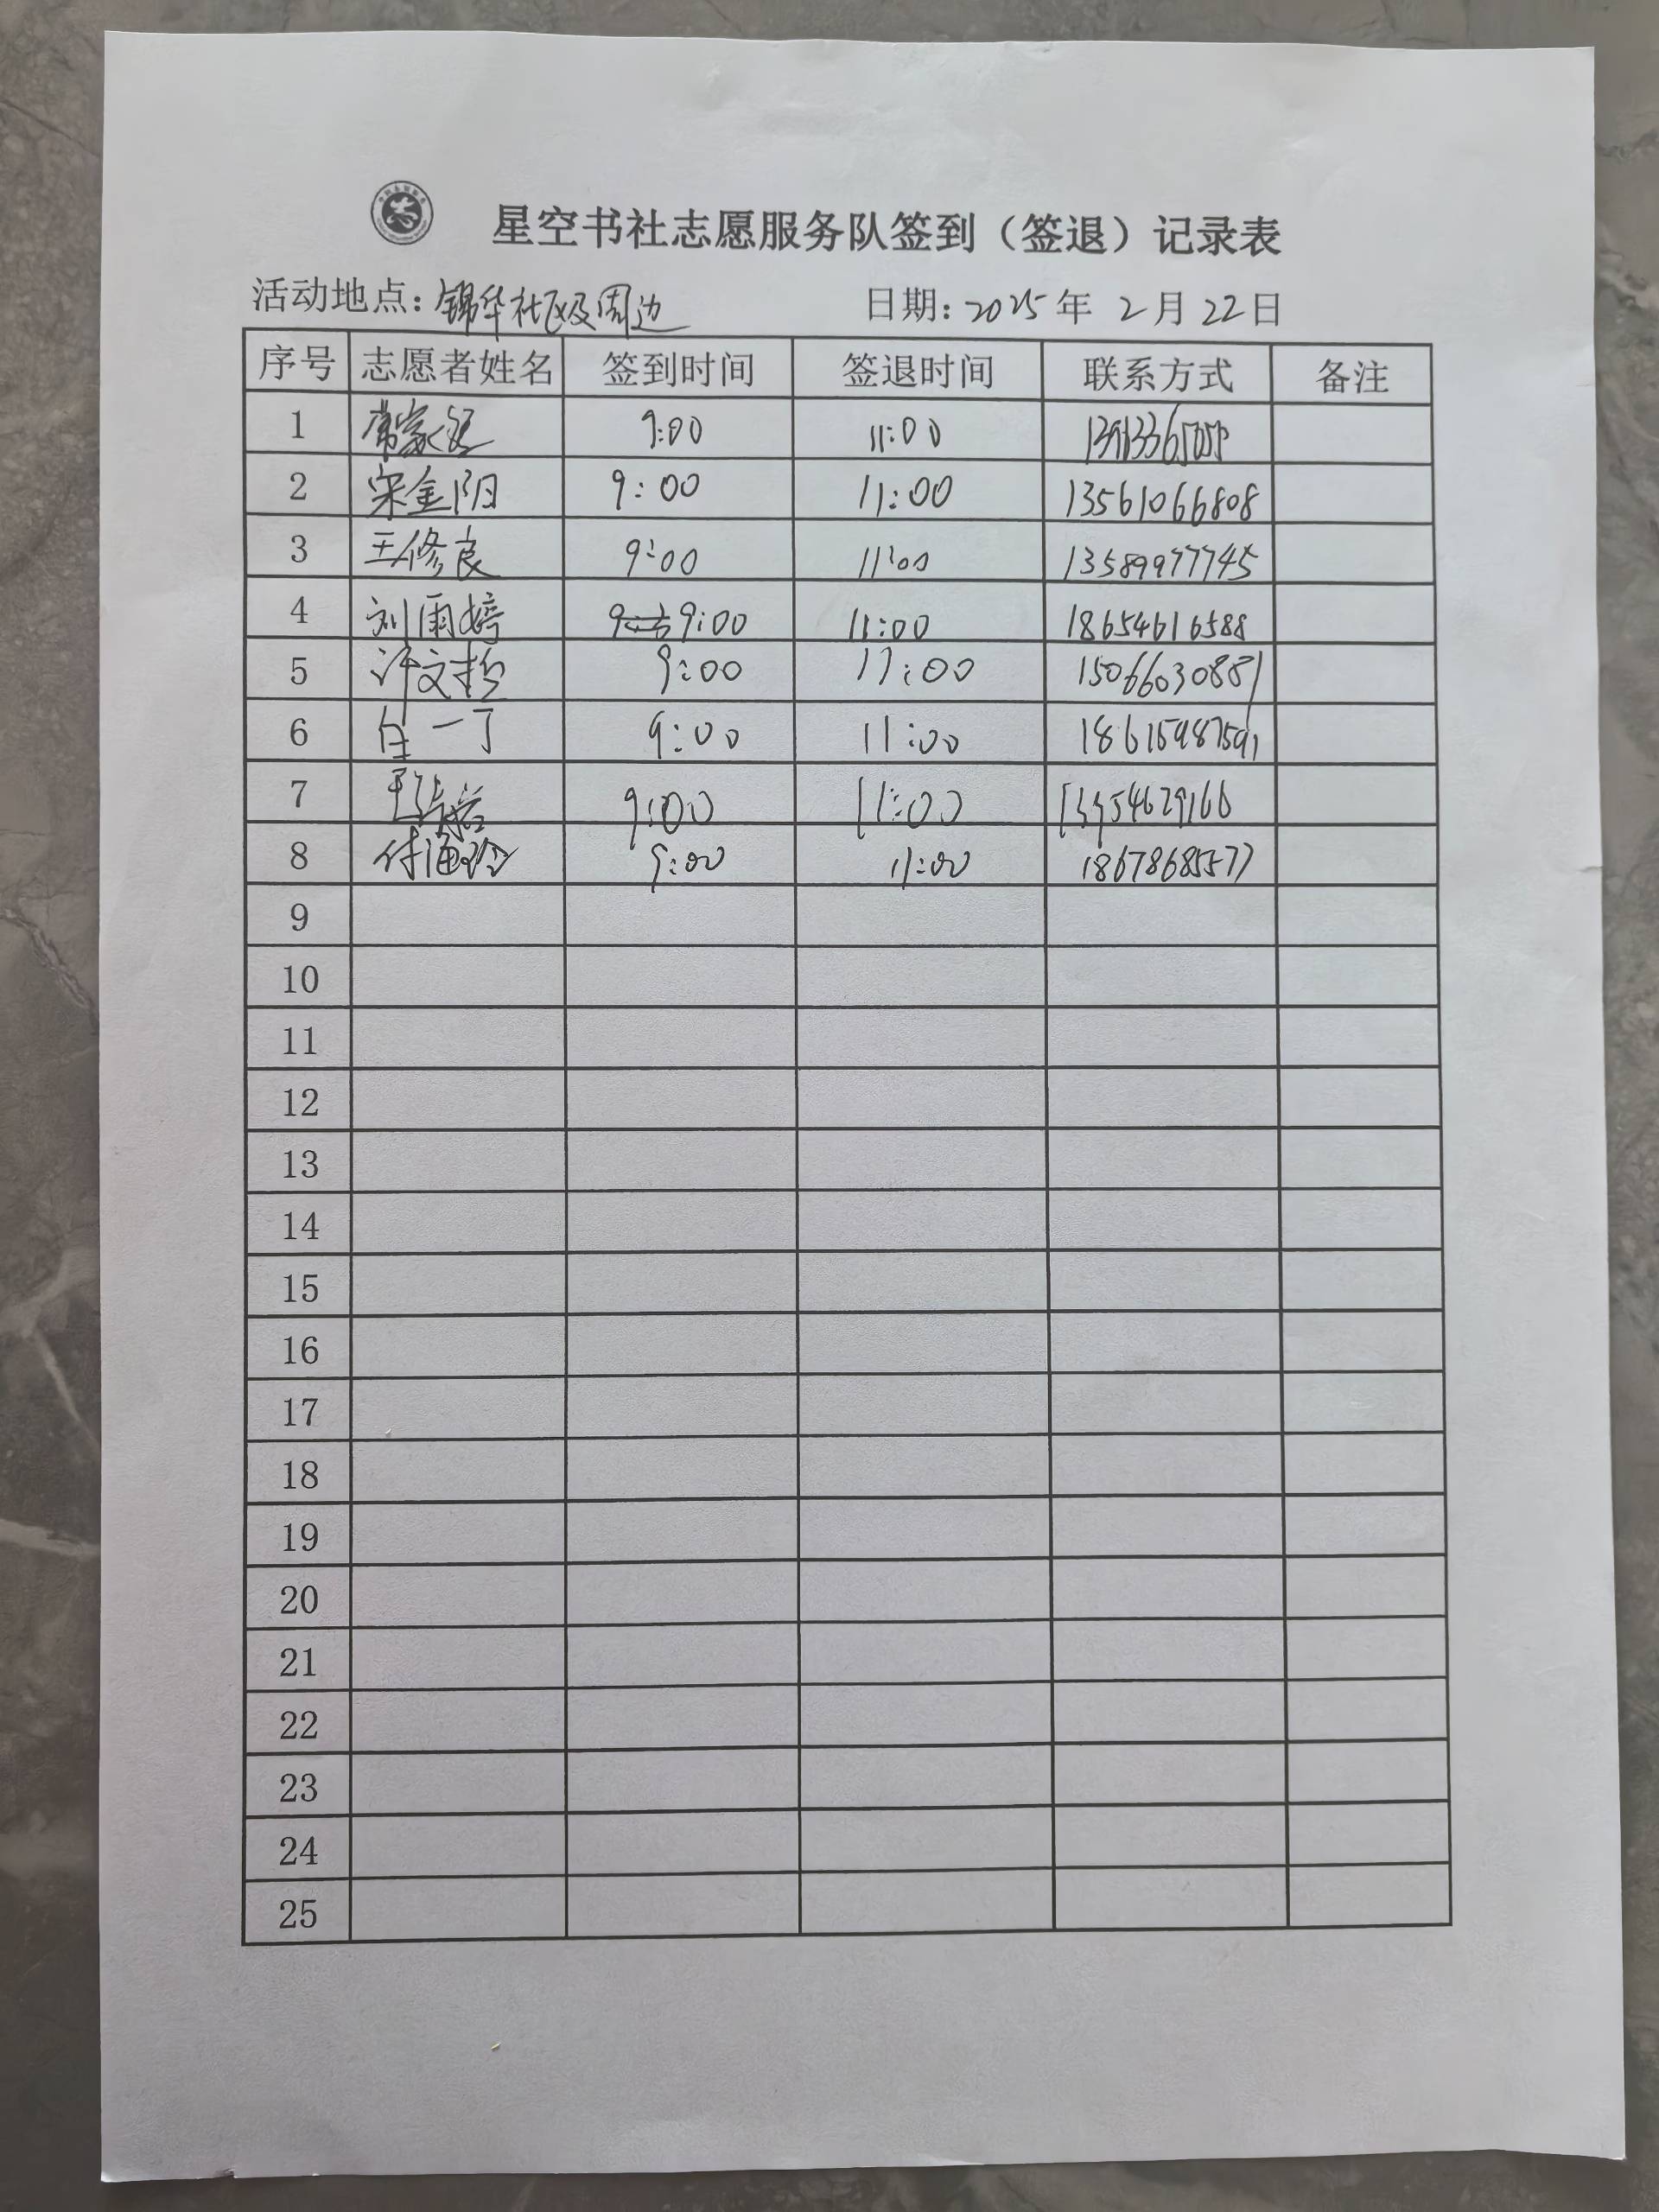 星空书社志愿服务队签到（签退）记录表
活动地点：锦华社区及周边 日期：2025年 2月 22日
序号 志愿者姓名 签到时间 签退时间 联系方式 备注
1 常家 9:00 11:00
2 宋金阳 9:00 11:00 13561066808
3 王修良 9:00 11:00 13589977745
4 刘雨婷 9:00 11:00 18654616588
5 许文哲 9:00 11:00 15066030881
6 任一丁 9:00 11:00 18615987591
7 9:00 11:00 13954629166
8 付 9:00 11:00 18678685577
9
10
11
12
13
14
15
16
17
18
19
20
21
22
23
24
25